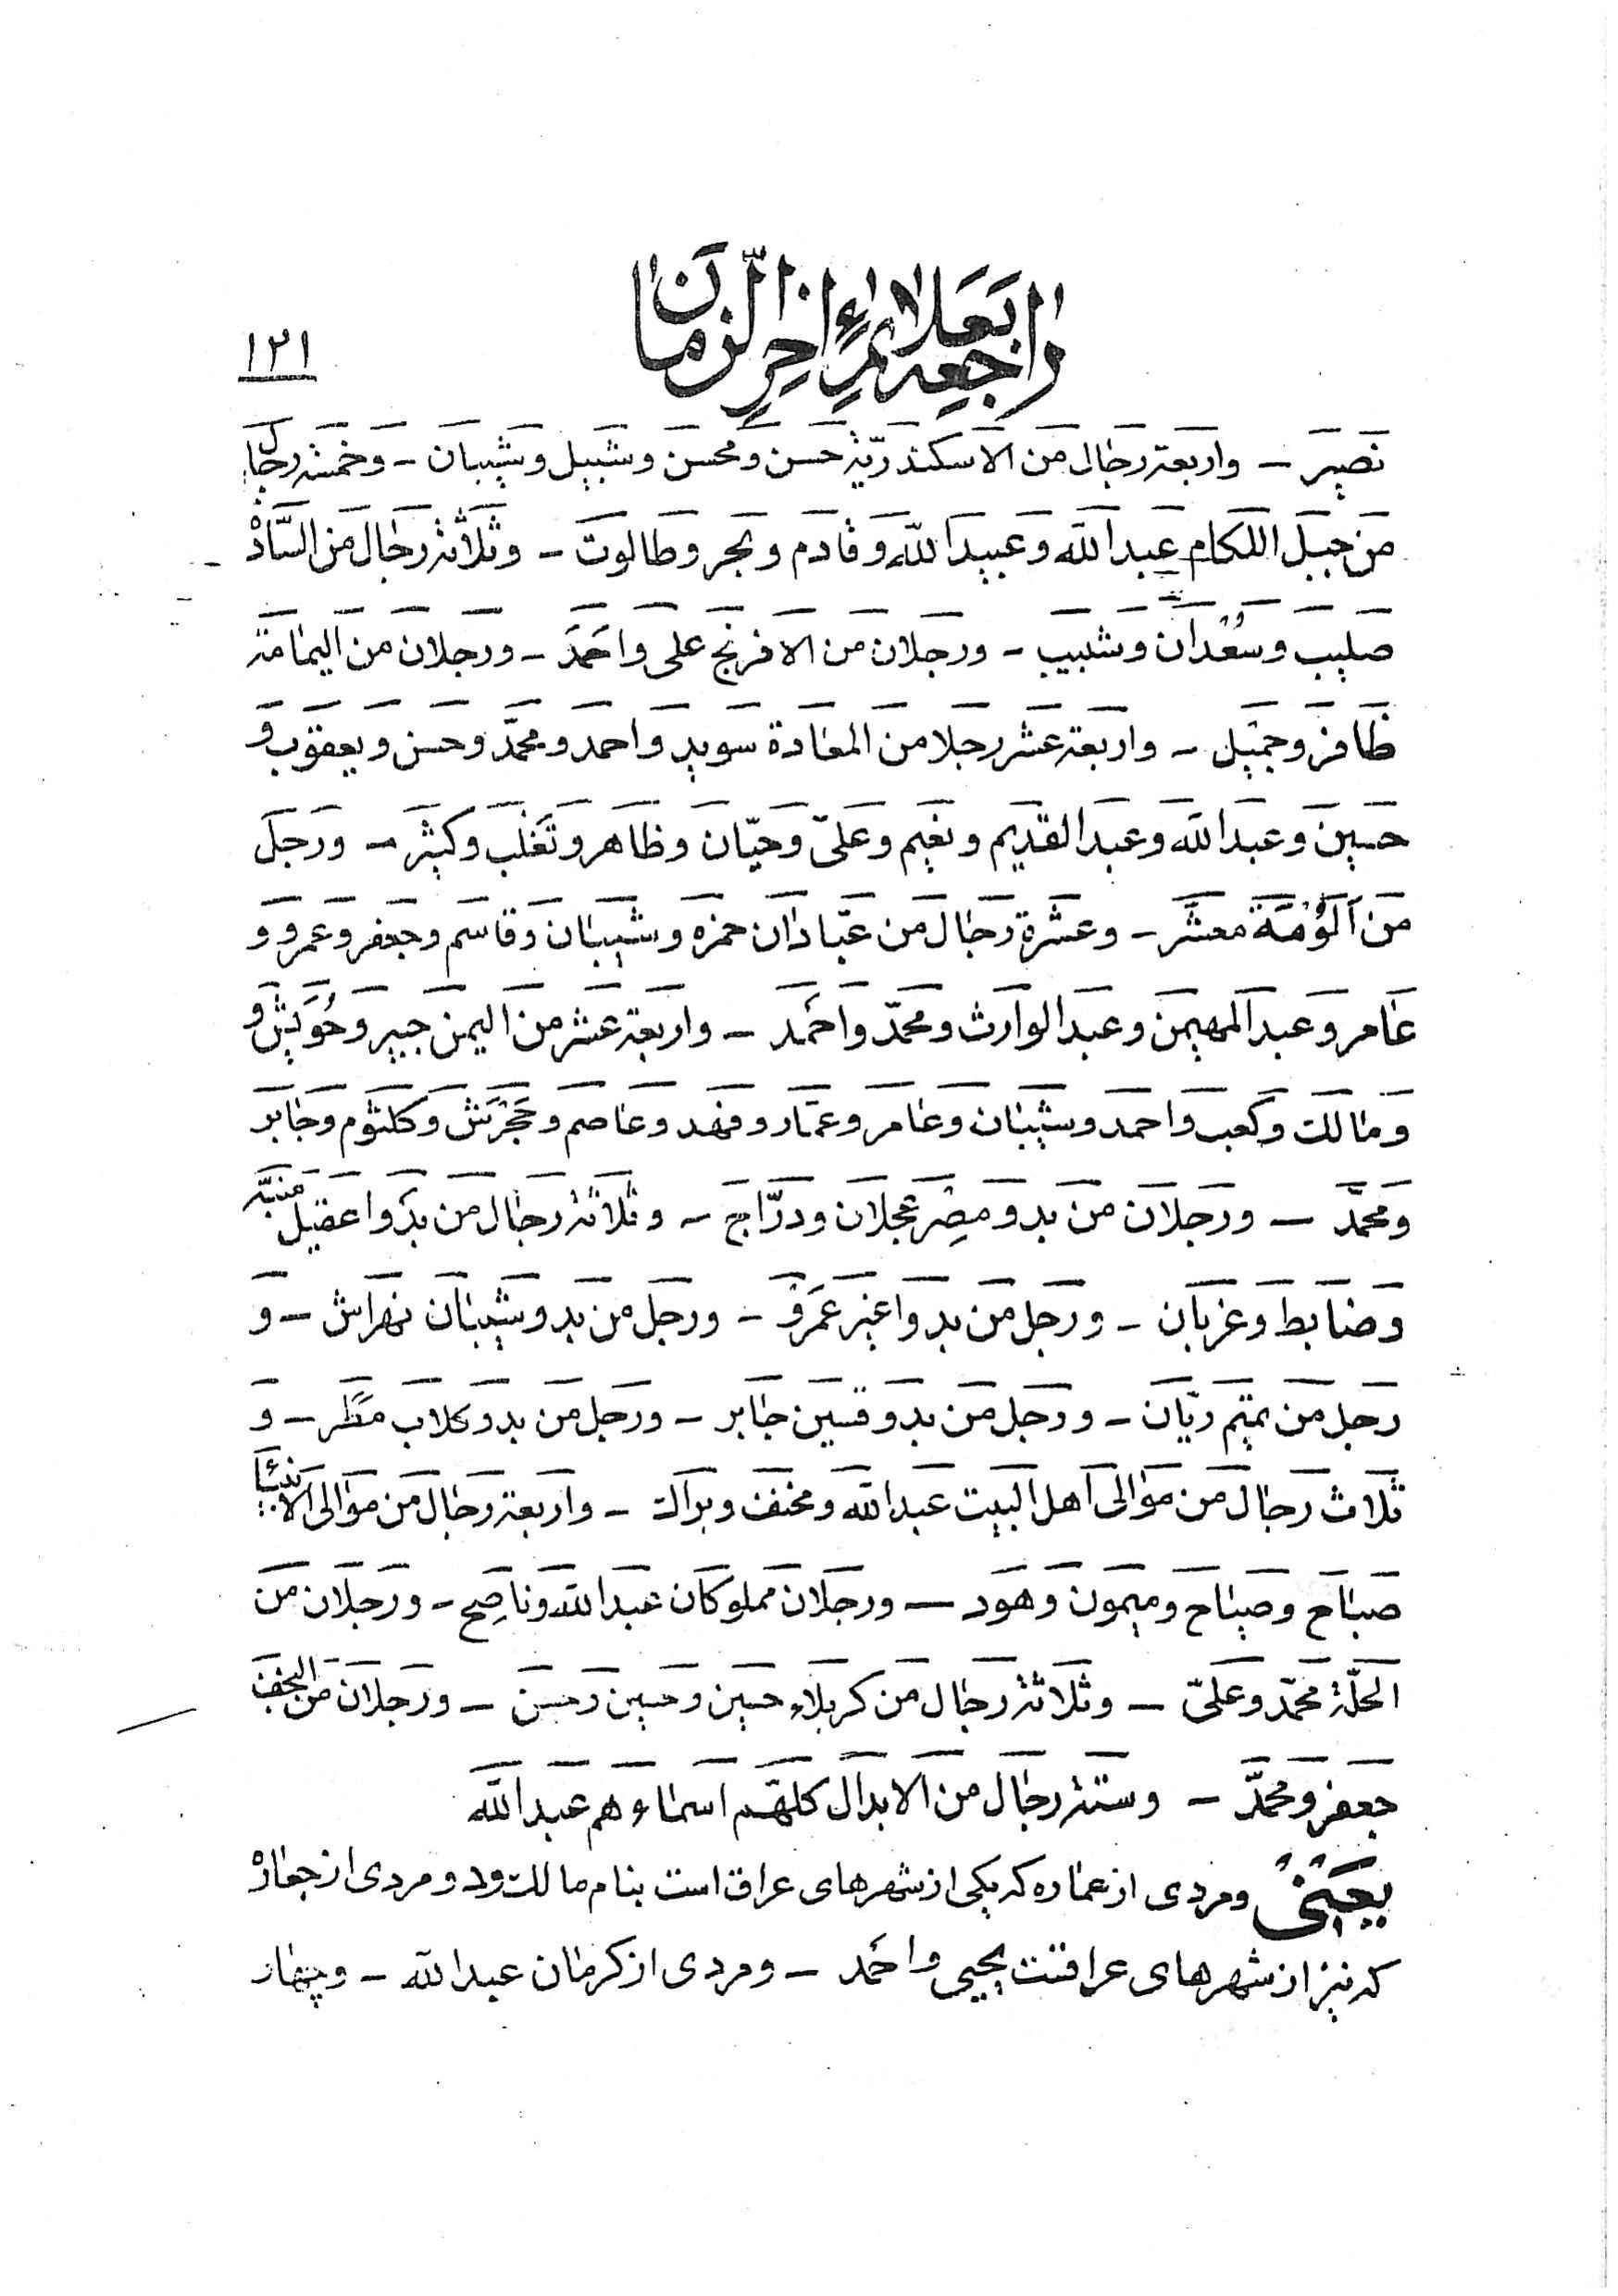 راجعه بعلائم اخر الزمان
۱۲۱
نصیر – واربعة رجال من الاسکندریّة حسن ومحسن وشبیل وشیبان – وخمسة رجال
من جبل اللکام عبدالله وعبیدالله وقادم وبحر وطالوت – وثلاثة رجال من السّادة
صلیب وسعدان وشبیب – ورجلان من الافرنج علی واحمد – ورجلان من الیمامة
ظافر وجمیل – واربعة عشر رجلا من المعادة سوید واحمد ومحمّد وحسن ویعقوب و
حسین وعبدالله وعبدالقدیم ونعیم وعلیّ وحیّان وظاهر وتغلب وکثیر – ورجل
من الومة معشر – وعشرة رجال من عبّادان حمزه وشیبان وقاسم وجعفر وعمرو و
عامر وعبدالمهیمن وعبدالوارث ومحمّد واحمد – واربعة عشر من الیمن جبیر وحویش و
ومالک وکعب واحمد وشیبان وعامر وعمّار وفهد وعاصم وحجرش وکلثوم وجابر
ومحمّد – ورجلان من بدو مصر عجلان ودرّاج – وثلاثة رجال من بدوا عقیل منبّه
وضابط وغربان – ورجل من بدو اغیر عمرو – ورجل من بدو شیبان نهراش – و
رجل من تمیم ریّان – ورجل من بدو قسین جابر – ورجل من بدو کلاب مطر – و
ثلاث رجال من موالی اهل البیت عبدالله ومخنف وبراک – واربعة رجال من موالی الانبیا
صباح وصیاح ومیمون وهود – ورجلان مملوکان عبدالله وناصح – ورجلان من
الحلّة محمّد وعلیّ – وثلاثة رجال من کربلاء حسین وحسین وحسن – ورجلان من النجف
جعفر ومحمّد – وستة رجال من الابدال کلهم اسماءهم عبدالله
یعنی ومردی از عماره که یکی از شهرهای عراق است بنام مالک رود و مردی از جعاره
که نیز از شهرهای عراقست یحیی واحمد – ومردی از کرمان عبدالله – وچهار